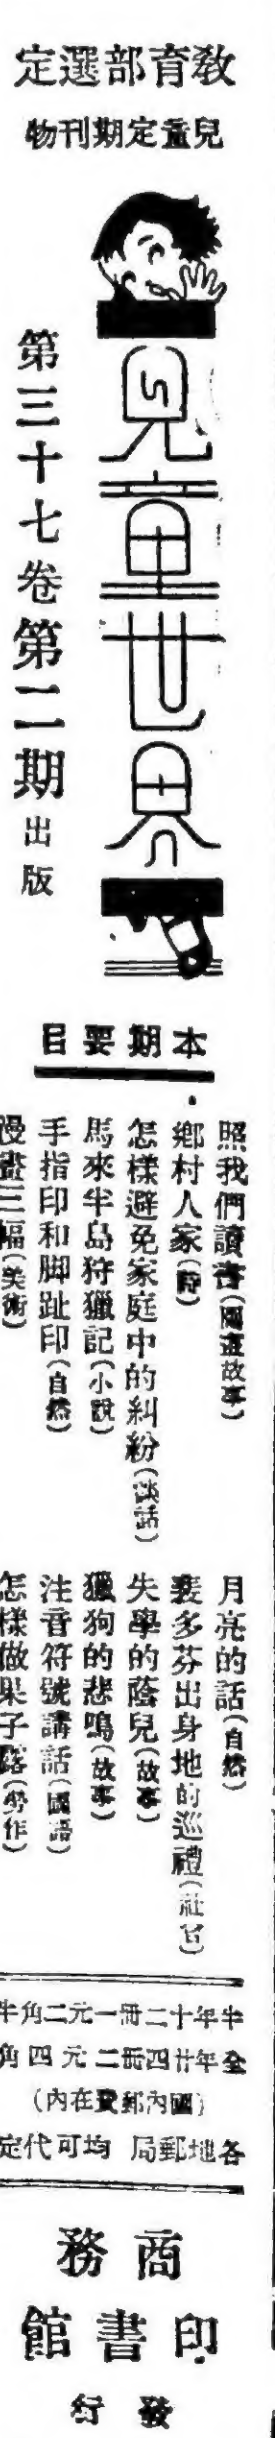 教育部選定
兒童定期刊物
兒童世界
第三十七卷第二期出版
本期要目
照我們讀書(圖畫故事)
鄉村人家(詩)
怎樣避免家庭中的糾紛(談話)
馬來半島狩獵記(小說)
手指印和脚趾印(自然)
漫畫三幅(美術)
月亮的話(自然)
裴多芬出身地的巡禮(社會)
失學的蔭兒(故事)
獵狗的悲鳴(故事)
注音符號講話(國語)
怎樣做果子露(勞作)
半年十二冊一元二角半
全年廿四冊二元四角
(國內郵費在內)
各地郵局均可代定
商務
印書館
發行